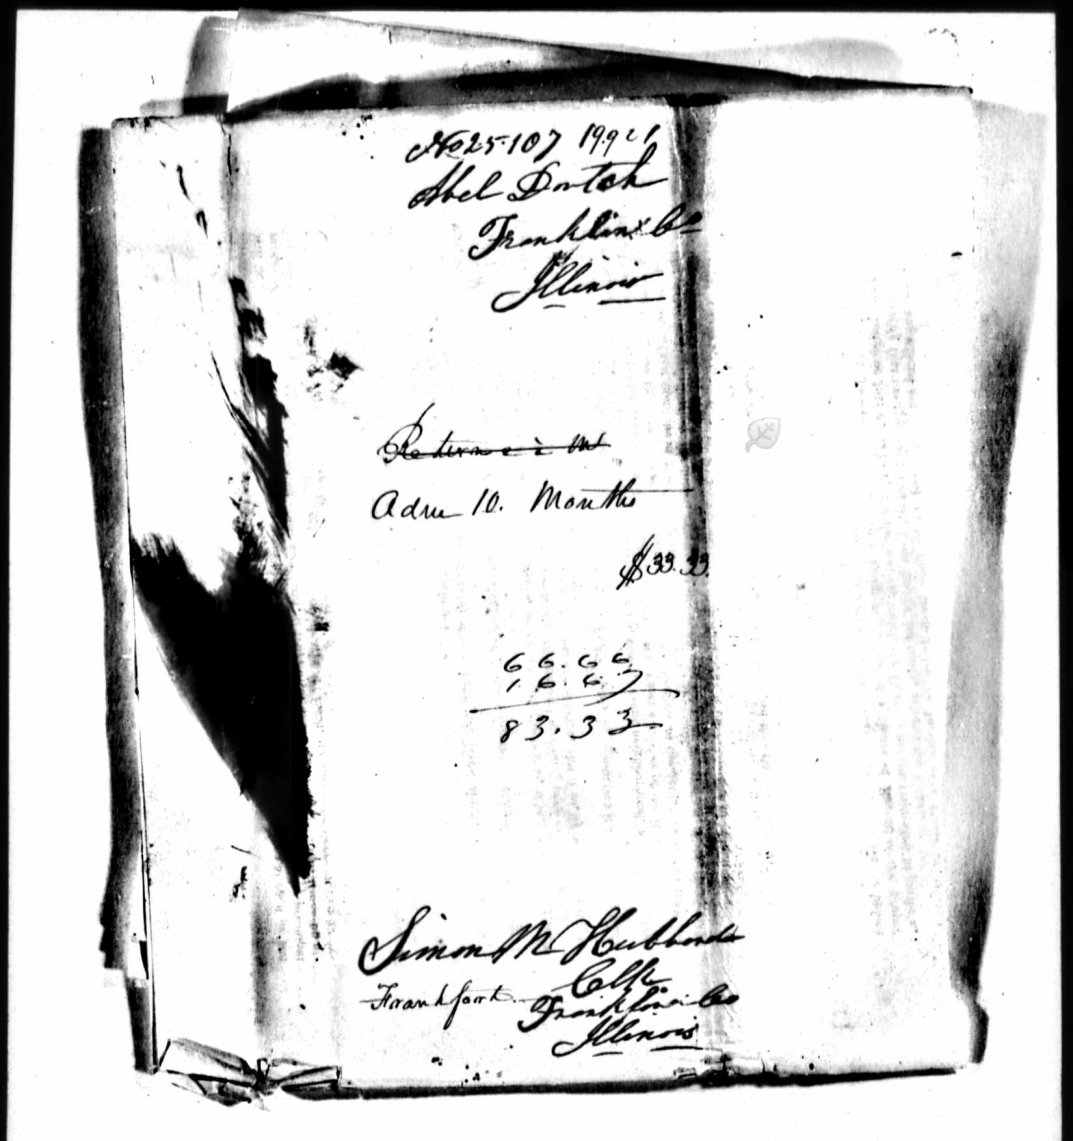 No 25.107 1992 1
Abel Dortch
Franklin Co
Illinois
Adm 10. Months
$33.33
66.66
16.67
83.33
Simon M Hubbard
Clk
Frankfort
Franklin Co
Illinois